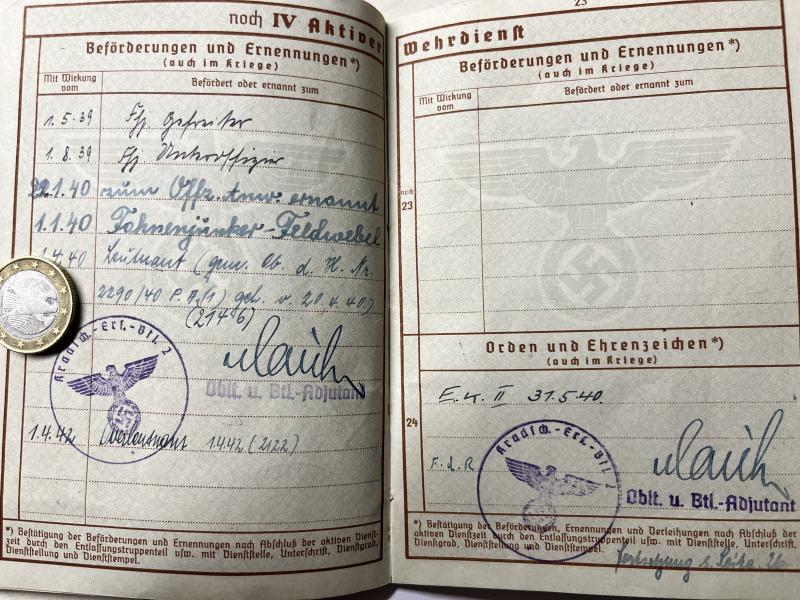 noch IV Aktiver
Beförderungen und Ernennungen*)
(auch im Kriege)
Mit Wirkung
vom
Befördert oder ernannt zum
1.5.39 Fhj Gefreiter
1.8.39 Fhj Unteroffizier
22.1.40 zum Offz. Anw. ernannt
1.1.40 Fahnenjunker-Feldwebel
1.4.40 Leutnant (gem. Ob. d. H. Nr.
2290/40 P.A.(1) gel. v. 20.4.40)
(2146)
Kradsch.-Ers.-Btl. 2
Oblt. u. Btl.-Adjutant
1.4.42 Oberleutnant 1.4.42 (2122)
*) Bestätigung der Beförderungen und Ernennungen nach Abschluß der aktiven Dienst-
zeit durch den Entlassungstruppenteil usw. mit Dienststelle, Unterschrift, Dienstgrad,
Dienststellung und Dienststempel.
23
Wehrdienst
Beförderungen und Ernennungen*)
(auch im Kriege)
Mit Wirkung
vom
Befördert oder ernannt zum
noch
23
Orden und Ehrenzeichen*)
(auch im Kriege)
E.K. II 31.5.40.
24
F.d.R.
Kradsch.-Ers.-Btl. 2
Oblt. u. Btl.-Adjutant
*) Bestätigung der Beförderungen, Ernennungen und Verleihungen nach Abschluß der
aktiven Dienstzeit durch den Entlassungstruppenteil usw. mit Dienststelle, Unterschrift,
Dienstgrad, Dienststellung und Dienststempel.
Fortsetzung s. Seite 26.